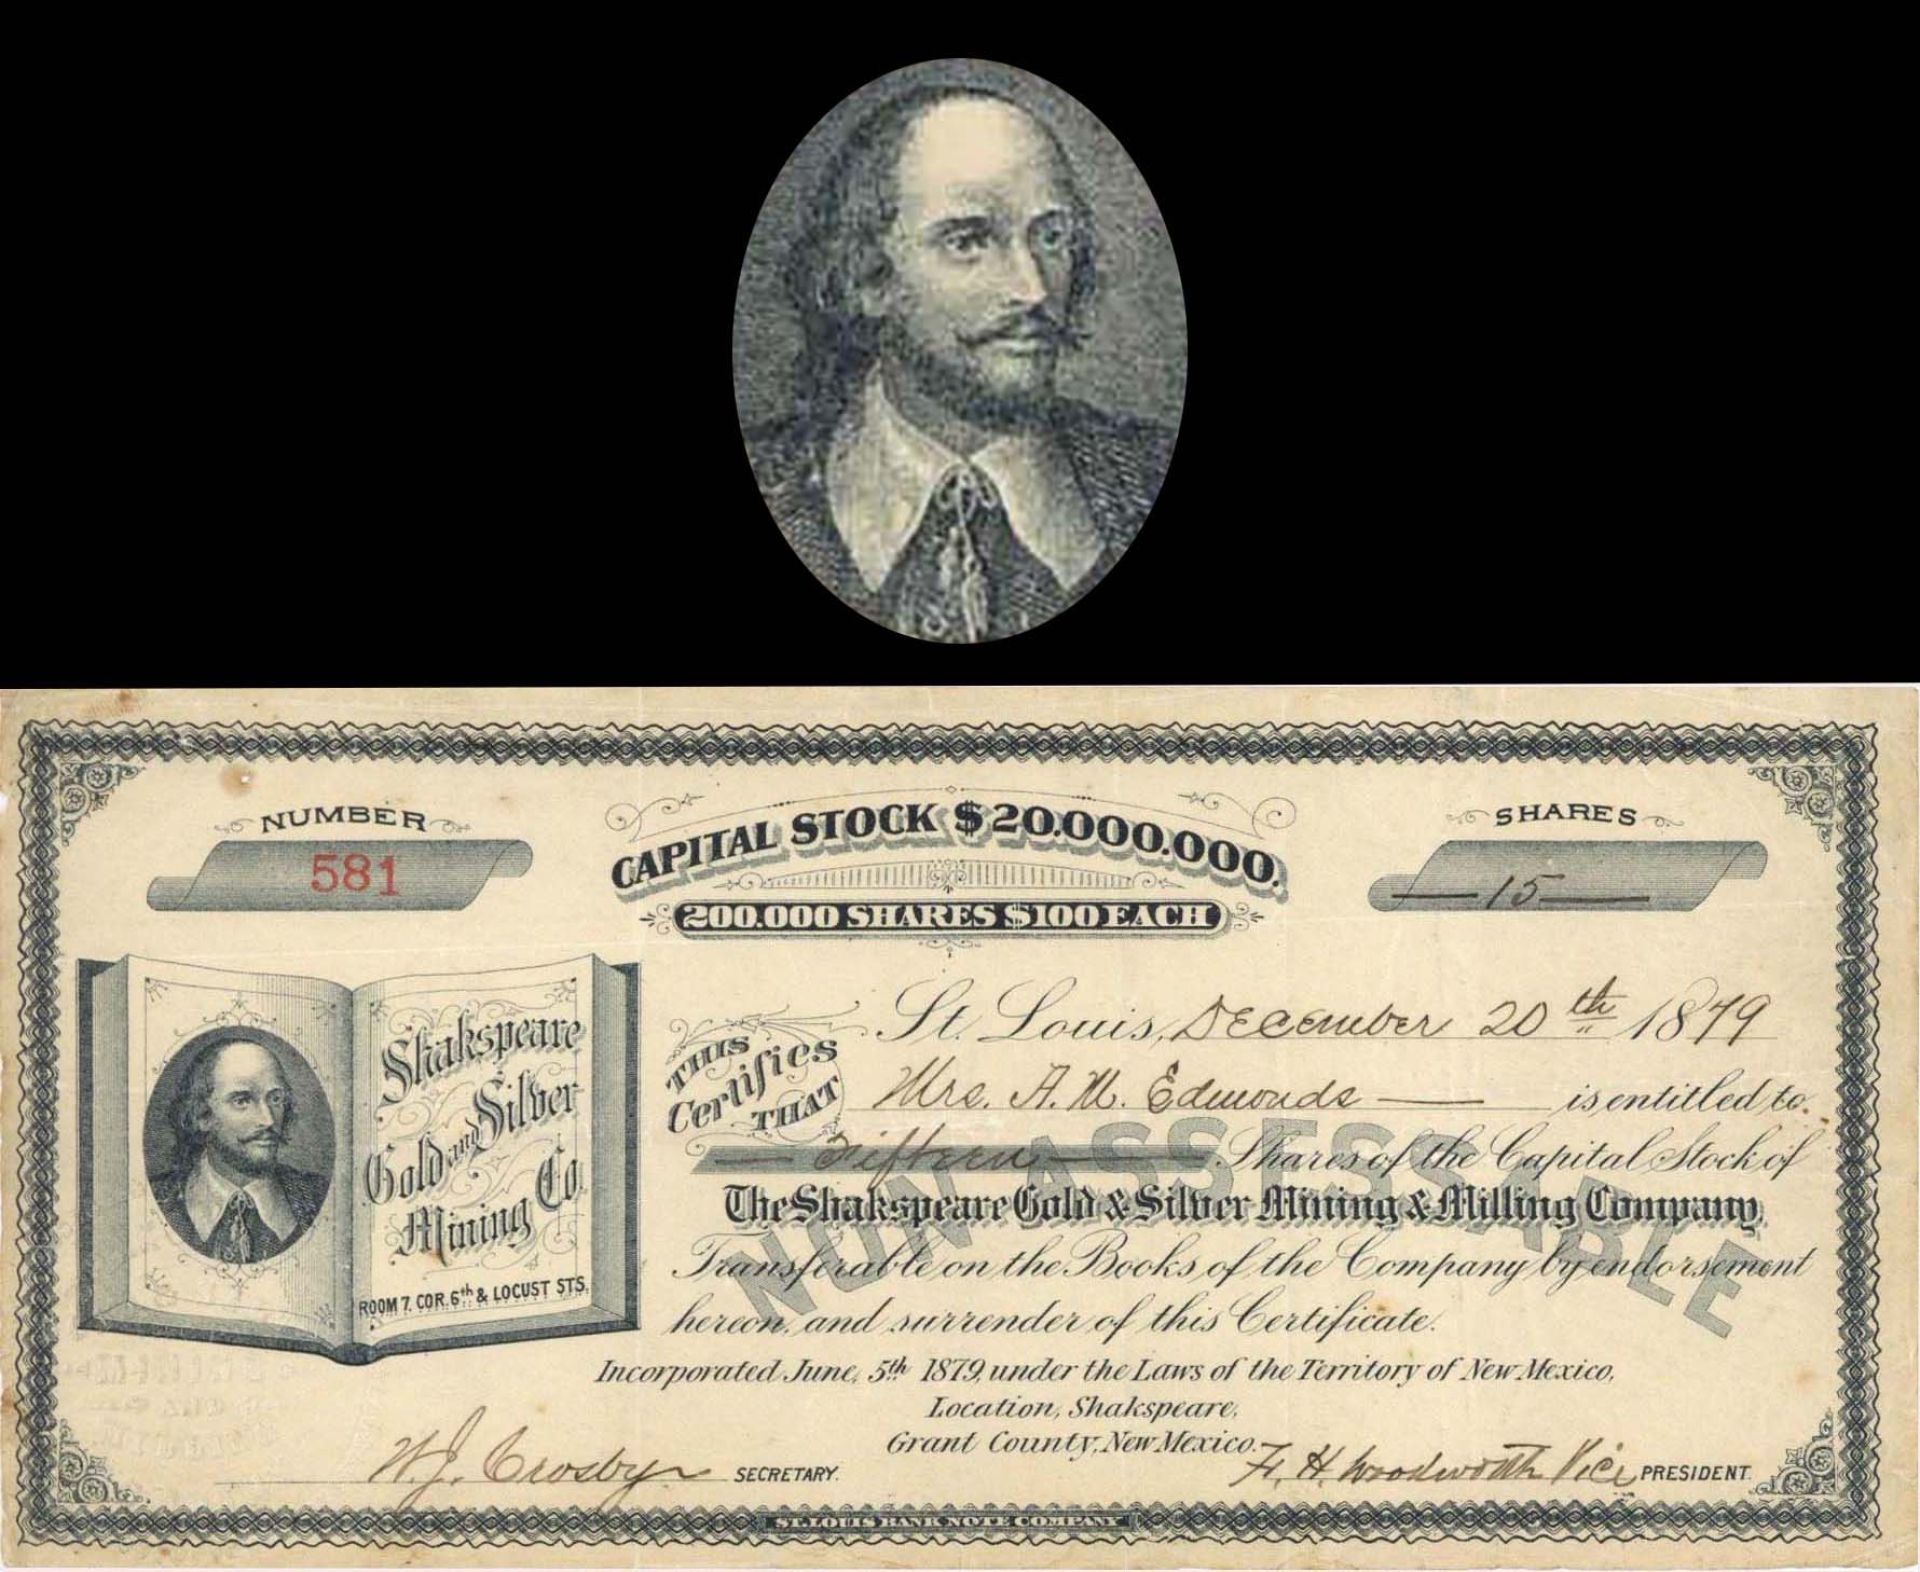 NUMBER
581
CAPITAL STOCK $20.000.000.
200.000 SHARES $100 EACH
SHARES
15
Shakspeare
Gold and Silver
Mining Co.
ROOM 7. COR. 6th & LOCUST STS.
THIS Certifies THAT
St. Louis, December 20th 1879
Mrs. A. M. Edmonds is entitled to
Fifteen Shares of the Capital Stock of
The Shakspeare Gold & Silver Mining & Milling Company,
Transferable on the Books of the Company by endorsement
hereon, and surrender of this Certificate.
NON ASSESSABLE
Incorporated June, 5th 1879, under the Laws of the Territory of New Mexico,
Location, Shakspeare,
Grant County, New Mexico.
W. J. Crosby SECRETARY.
F. H. Woodworth Vice PRESIDENT.
ST. LOUIS BANK NOTE COMPANY